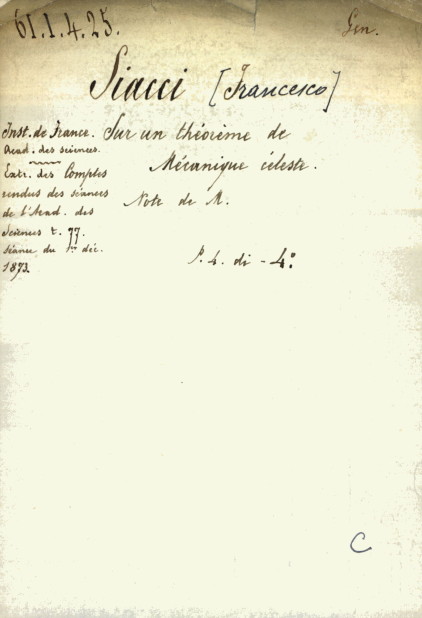 61.1.4.25.
Gen.
Siacci [Francesco]
Inst. de France.
Acad. des sciences.
Extr. des Comptes
rendus des séances
de l'Acad. des
Sciences t. 77.
séance du 1er déc.
1873.
Sur un théorème de
Mécanique céleste.
Note de M.
P. 4. di - 4º
C